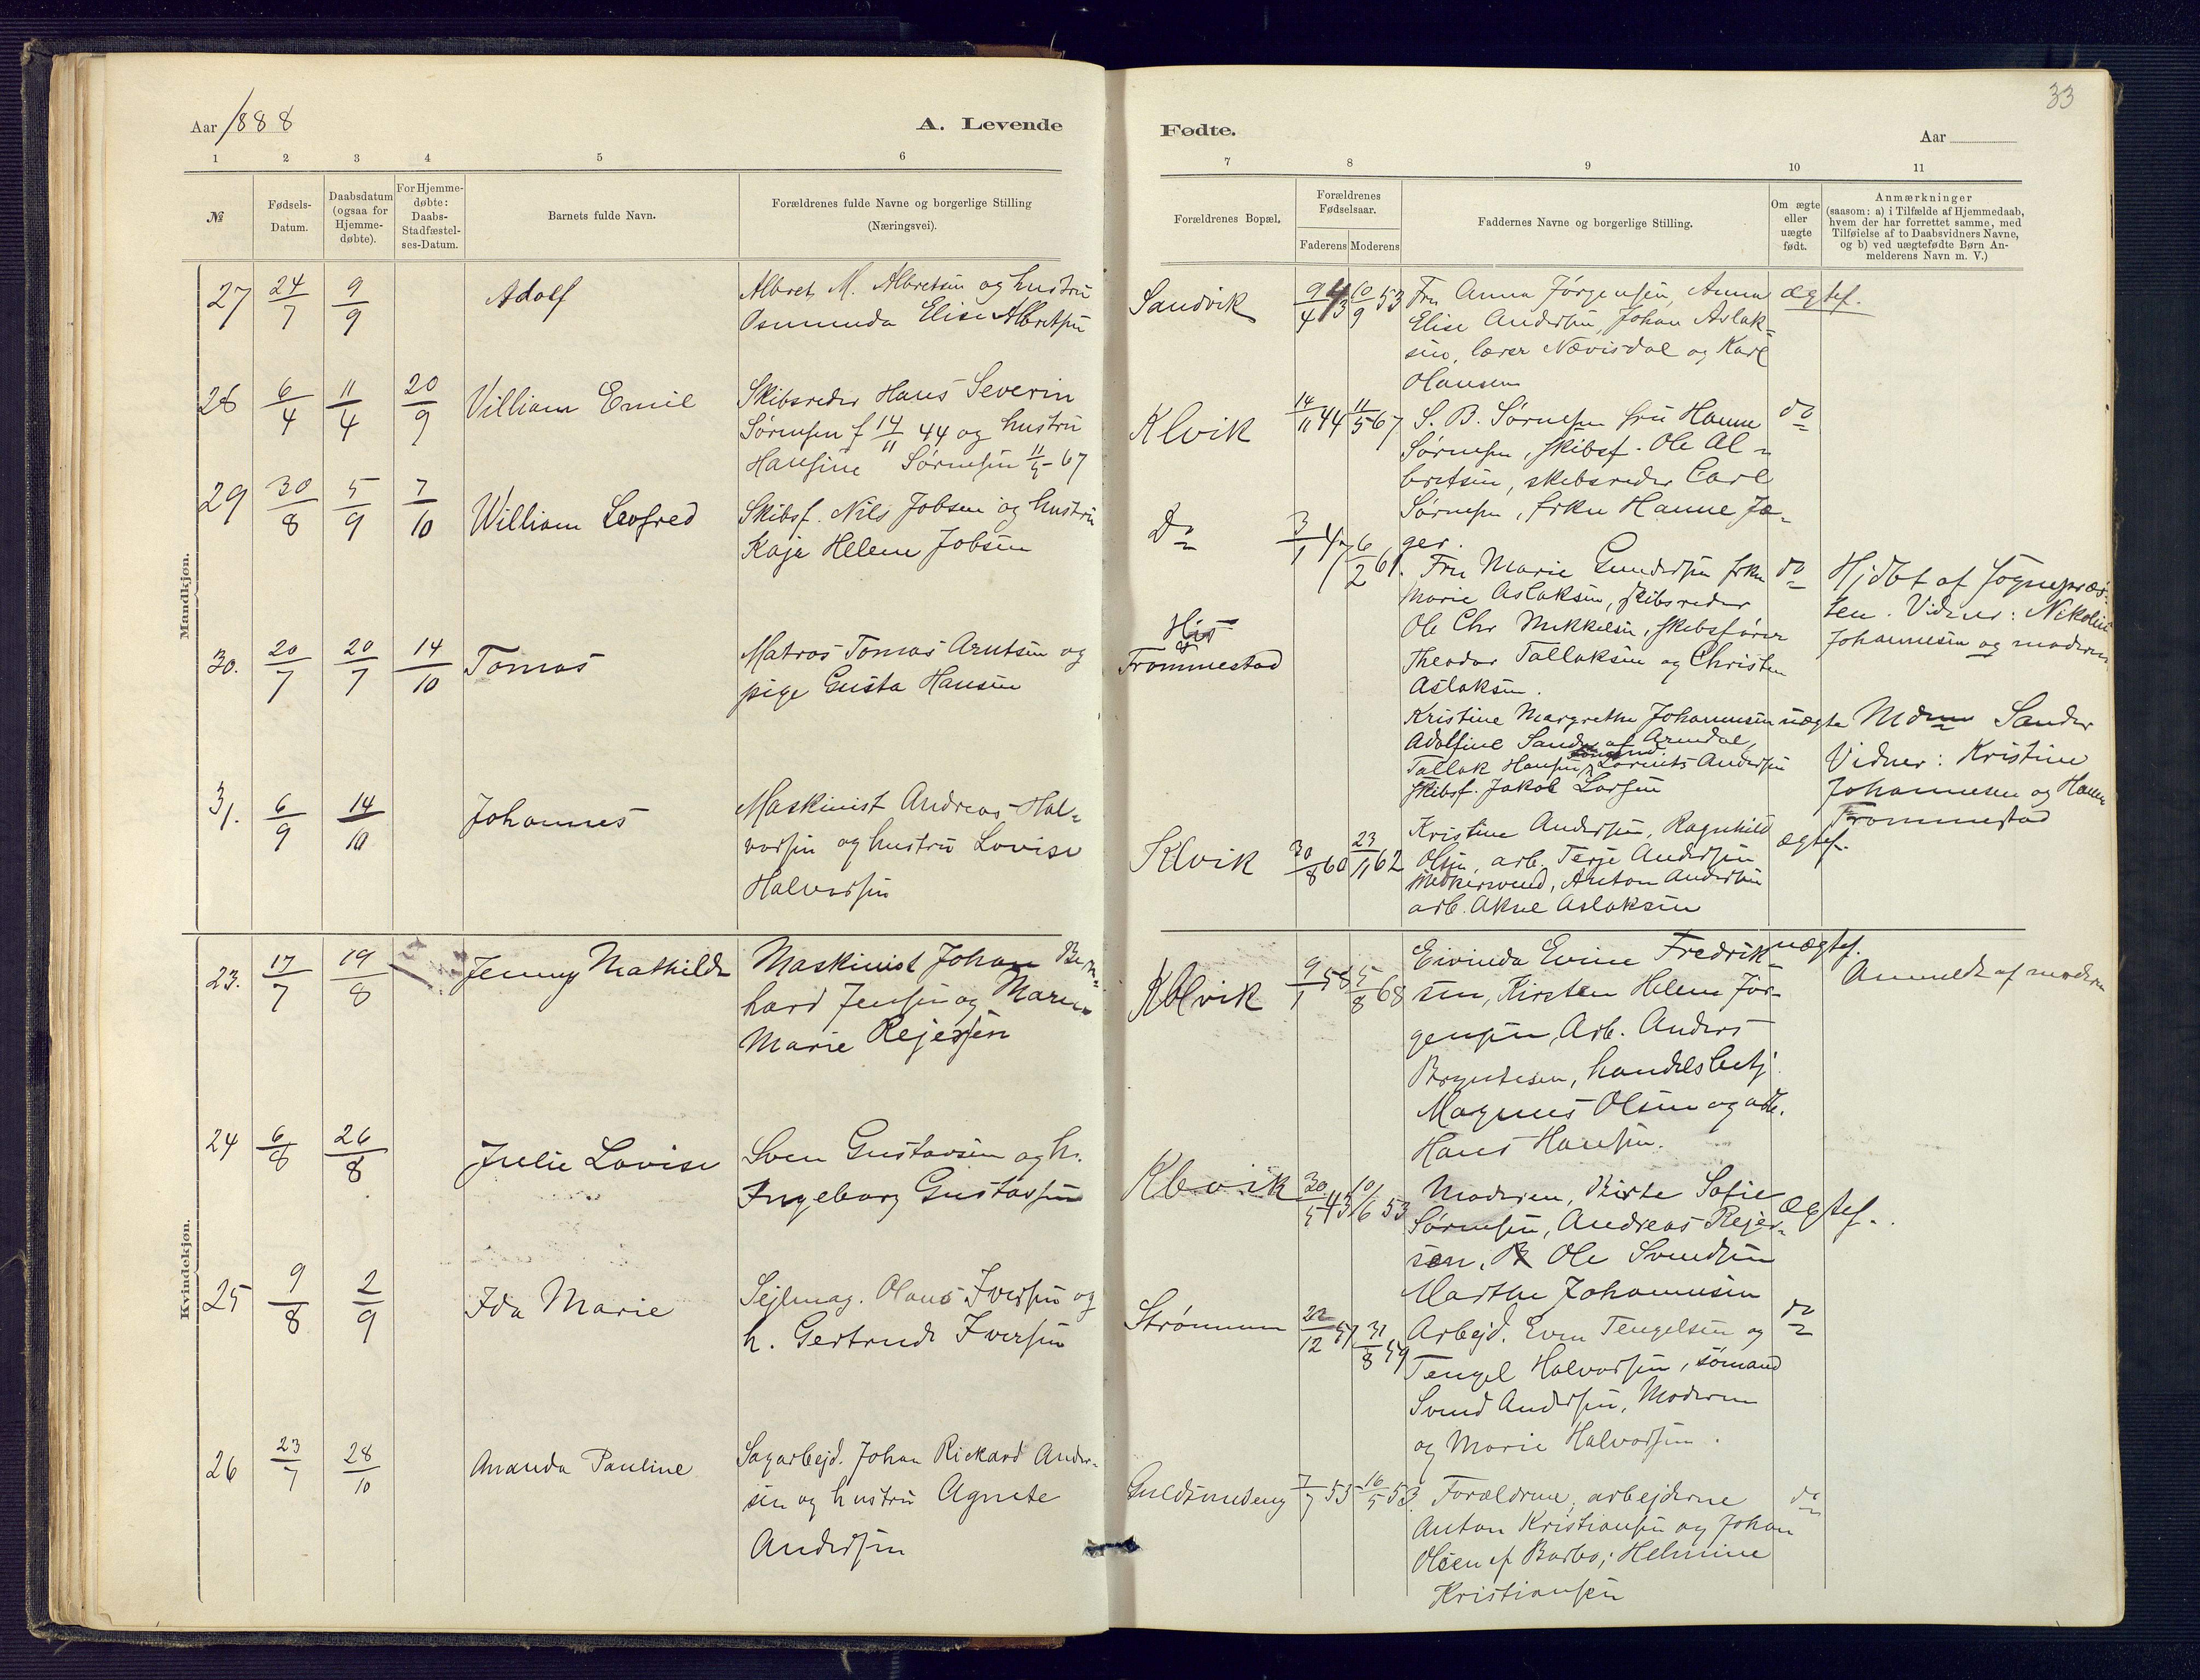 33
Aar 1888
A. Levende
Fødte.
Aar
1 2 3 4 5 6
7 8 9 10 11
№
Fødsels-
Datum.
Daabsdatum
(ogsaa for
Hjemme-
døbte).
For Hjemme-
døbte:
Daabs-
Stadfæstel-
ses-Datum.
Barnets fulde Navn.
Forældrenes fulde Navne og borgerlige Stilling
(Næringsvei).
Forældrenes Bopæl.
Forældrenes
Fødselsaar.
Faderens Moderens
Faddernes Navne og borgerlige Stilling.
Om ægte
eller
uægte
født.
Anmærkninger
(saasom: a) i Tilfælde af Hjemmedaab,
hvem der har forrettet samme, med
Tilføielse af to Daabsvidners Navne,
og b) ved uægtefødte Børn An-
melderens Navn m. V.)
Mandkjøn.
27 24/7 9/9
Adolf
Albret M. Albretsen og hustru
Osmunda Elise Albretsen
Sandvik
9/4 43 10/9 53
Fru Anna Jørgensen, Anna
Elise Andersen, Johan Aslak-
sen, lærer Nævisdal og Karl
Olausen
ægtef.
28 6/4 11/4 20/9
Villiam Emil
Skibsreder Hans Severin
Sørensen f 14/11 44 og hustru
Hansine Sørensen 11/5 67
Klvik
14/11 44 11/5 67
S. B. Sørensen fru Hanne
Sørensen, skibsf. Ole Al-
bretsen, skibsreder Carl
Sørensen, frkn Hanne Jæ-
ger.
do
29 30/8 5/9 7/10
William Leofred
Skibsf. Nils Jobsen og hustru
Kaja Helene Jobsen
Do
3/1 47 6/2 61.
Fru Marie Gundersen frkn
Marie Aslaksen, skibsreder
Ole Chr Mikkelsen, skibsfører
Theodor Tallaksen og Christen
Aslaksen.
do
Hjdbt af sognepræs-
ten. Vidner: Nikolin
Johannesen og moderen
30. 20/7 20/7 14/10
Tomas
Matros Tomas Arntsen og
pige Gusta Hansen
His
Frommestad
Kristine Margrethe Johannesen
Adolfine Sander af Arendal,
Tallak Hansen, Lorents Andersen
skibsf. Jakob Larsen
uægte
Mdm Sander
Vidner: Kristine
Johannesen og Hanne
Frommestad
31. 6/9 14/10
Johannes
Maskinist Andreas Hal-
vorsen og hustru Lovise
Halvorsen
Klvik
30/8 60 23/11 62
Kristine Andersen, Ragnhild
Olsen, arb. Terje Andersen
Anton Andersen
arb. Aksel Aslaksen
ægtef.
Kvindekjøn.
23. 17/7 19/8
Jenny Mathilde
Maskinist Johan Bern-
hard Jensen og Maren
Marie Rejersen
Kolvik
9/1 58 5/8 68
Eivinda Evine Fredrik-
sen, Kirsten Helene Jør-
gensen, Arb. Anders
Bryntesen, handelsbetj.
Magnus Olsen og arb.
Hans Hansen.
uægtef.
Anmeldt af moderen
24 6/8 26/8
Julie Lovise
Sven Gustavsen og h.
Ingeborg Gustavsen
Klevik
30/5 43 10/6 53
Moderen, Birte Sofie
Sørensen, Andreas Rejer-
sen, Ole Svendsen
Marthe Johannesen
Ægtef.
25 9/8 2/9
Ida Marie
Sejlmag. Olaus Iversen og
h. Gertrude Iversen
Strømmen
22/12 57 31/8 59
Arbejd. Even Tengelsen og
Tengel Halvorsen, sømand
Svend Andersen, Moderen
og Marie Halvorsen.
do
26 23/7 28/10
Ananda Pauline
Sagarbejd. Johan Rickard Ander-
sen og hustru Agnete
Andersen
Guldsmedeng
7/7 53 16/5 53.
Forældrene, arbejderne
Anton Kristiansen og Johan
Olsen af Barbo; Helmine
Kristiansen
do